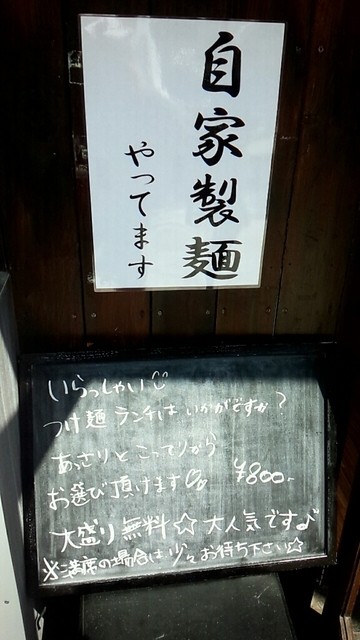 自家製麺
やってます
いらっしゃい♡
つけ麺 ランチは いかがですか?
あっさりとこってりから
お選び頂けます
¥800-
大盛り無料☆ 大人気です♪
※満席の場合は少々お待ち下さい☆